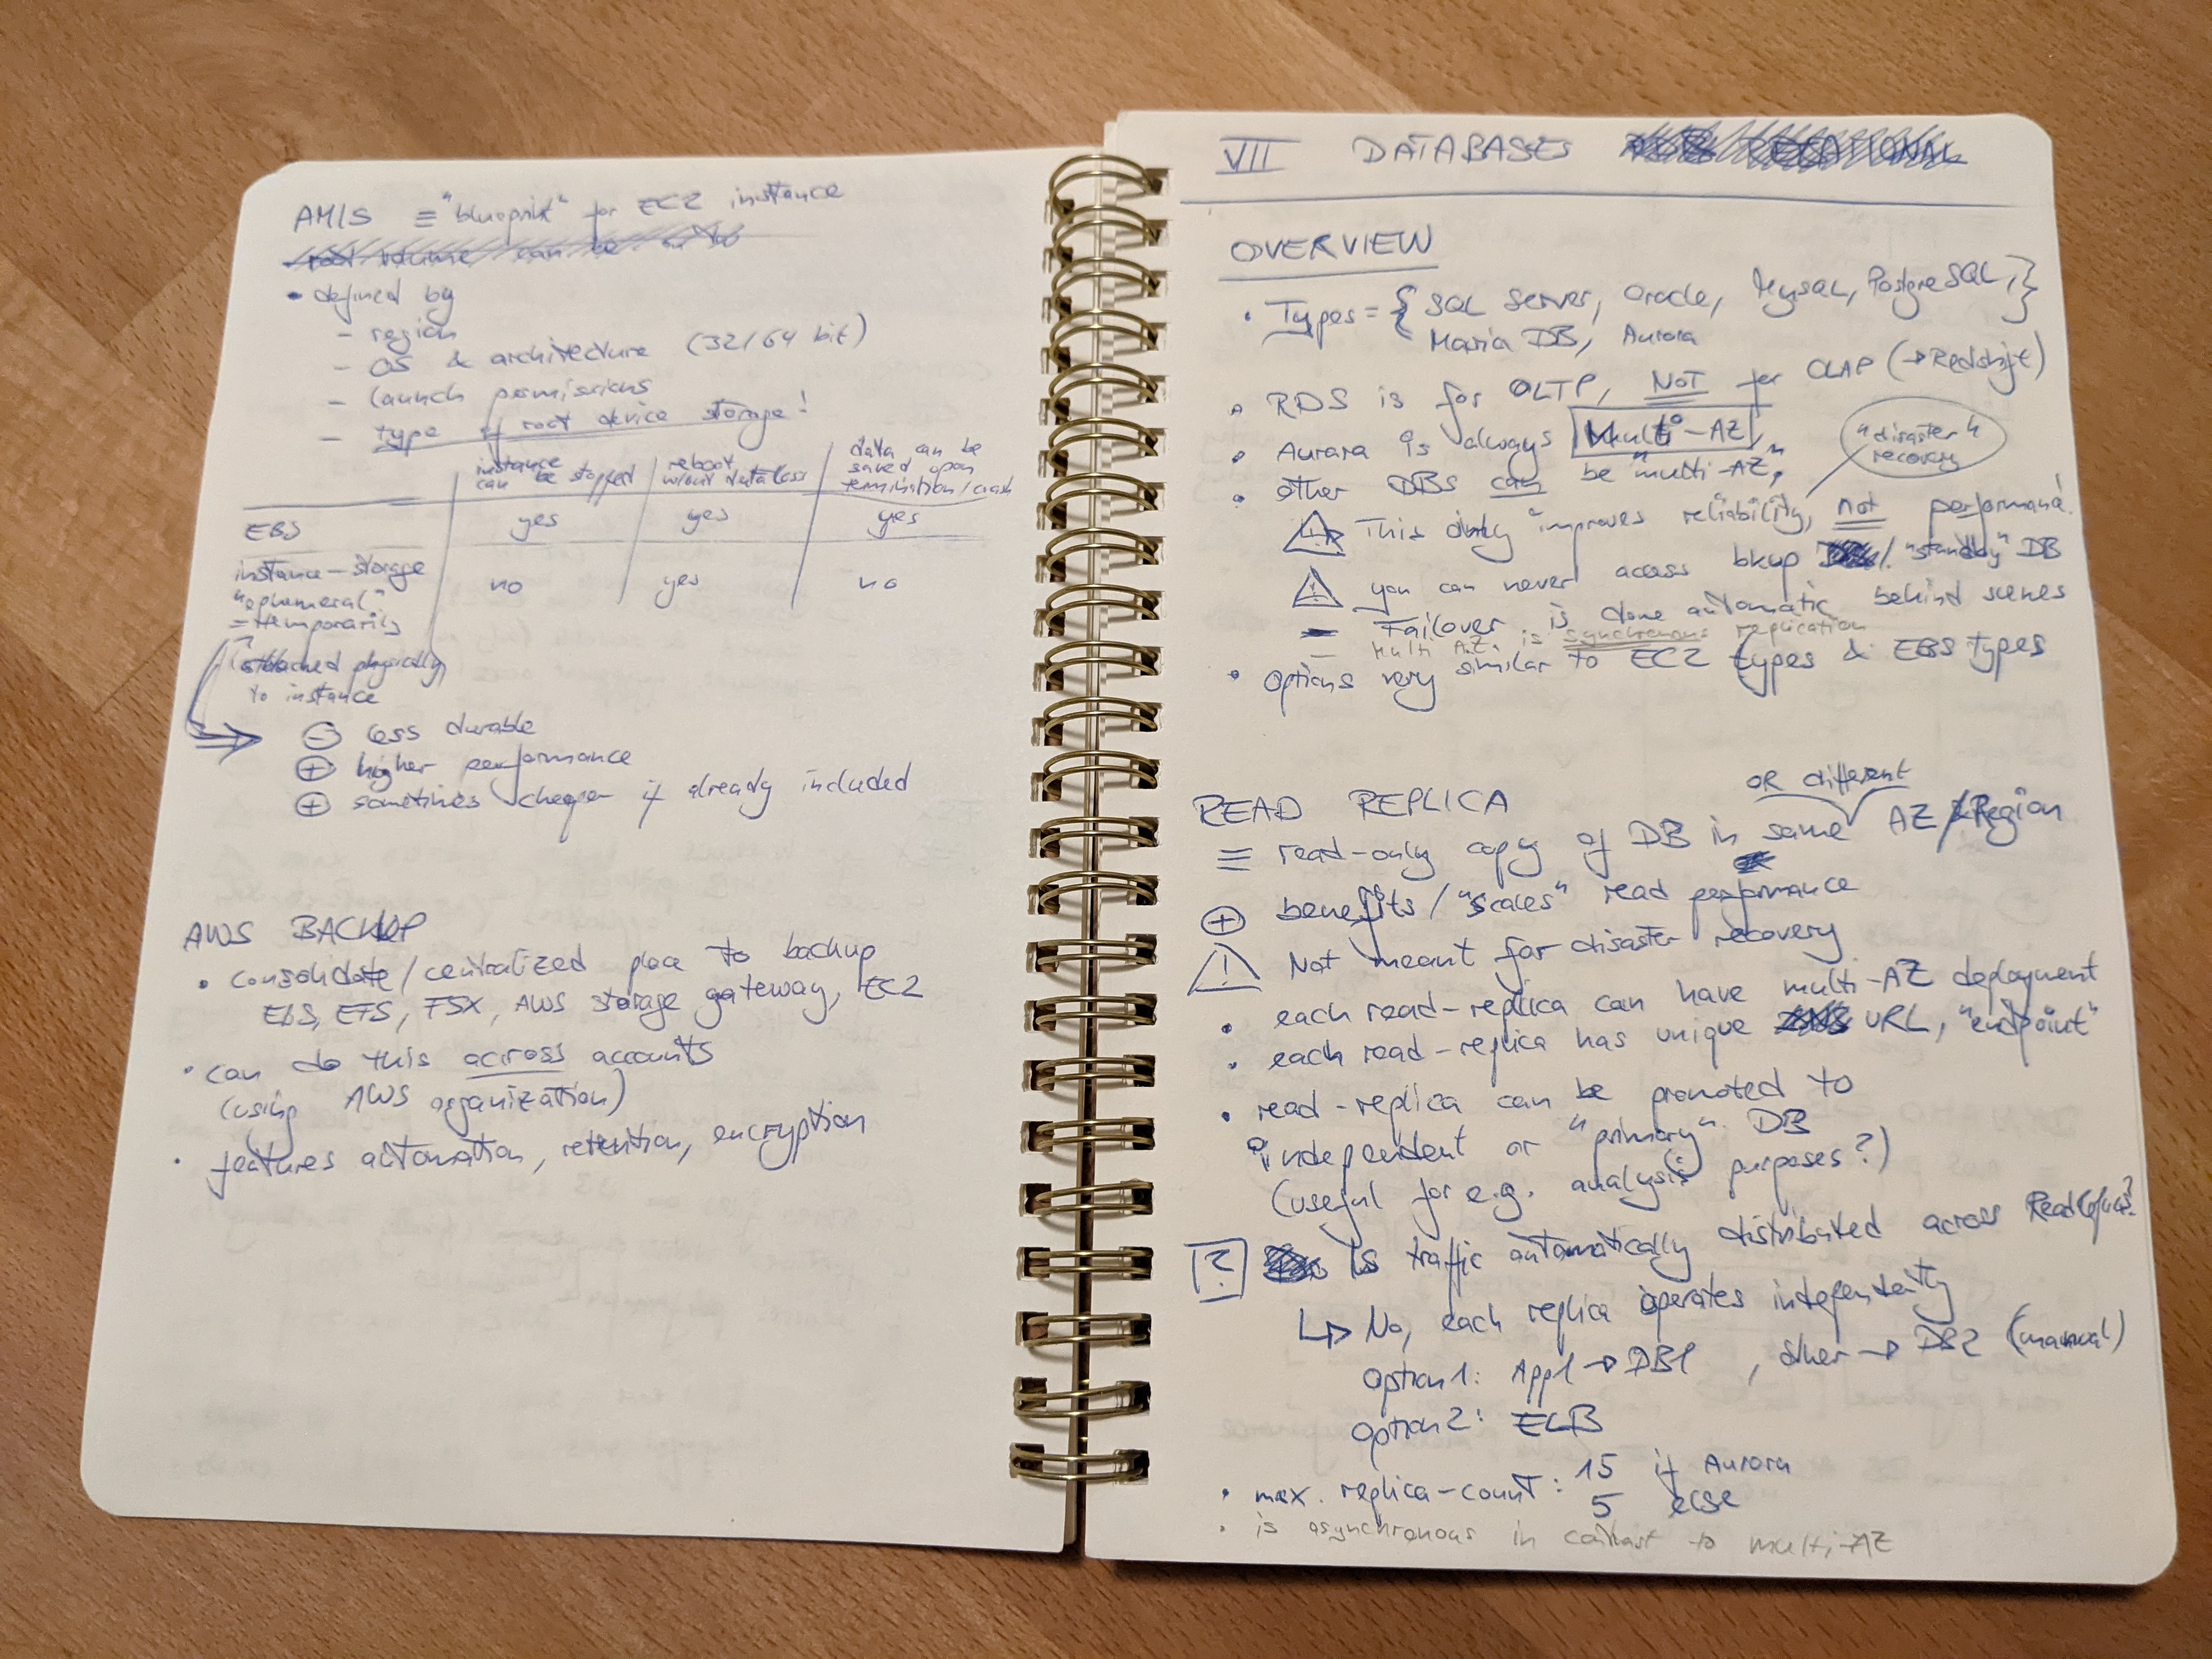 AMIS ≡ "blueprint" for EC2 instance
root volume can be
• defined by
- region
- OS & architecture (32/64 bit)
- launch permissions
- type of root device storage!
instance can be stopped | reboot w/out data loss | data can be saved upon termination/crash
EBS yes yes yes
instance-storage no yes no
"ephemeral"
= temporarily
(attached physically
to instance
⊖ less durable
⊕ higher performance
⊕ sometimes cheaper if already included
AWS BACKUP
• consolidate/centralized place to backup
EBS, EFS, FSX, AWS storage gateway, EC2
• can do this across accounts
(using AWS organization)
• features automation, retention, encryption
VII DATABASES RELATIONAL
OVERVIEW
• Types = { SQL Server, Oracle, MySQL, PostgreSQL, }
Maria DB, Aurora
• RDS is for OLTP, NOT for OLAP (→ Redshift)
• Aurora is always Multi-AZ
"disaster"
recovery
• other DBs can be "multi-AZ"
⚠ This only "improves reliability, not performance!
⚠ you can never access bkup / "standby" DB
- Failover is done automatic behind scenes
- Multi AZ is synchronous replication
• options very similar to EC2 types & EBS types
OR different
READ REPLICA
≡ read-only copy of DB in same AZ/Region
⊕ benefits/"scales" read performance
⚠ Not meant for disaster recovery
• each read-replica can have multi-AZ deployment
• each read-replica has unique URL, "endpoint"
• read-replica can be promoted to
independent or "primary" DB
(useful for e.g. analysis purposes?)
? Is traffic automatically distributed across
↳ No, each replica operates independently
option 1: App1 → DB1 , other → DB2 (manual)
option 2: ELB
• max. replica-count: 15 if Aurora
5 else
• is asynchronous in contrast to multi-AZ